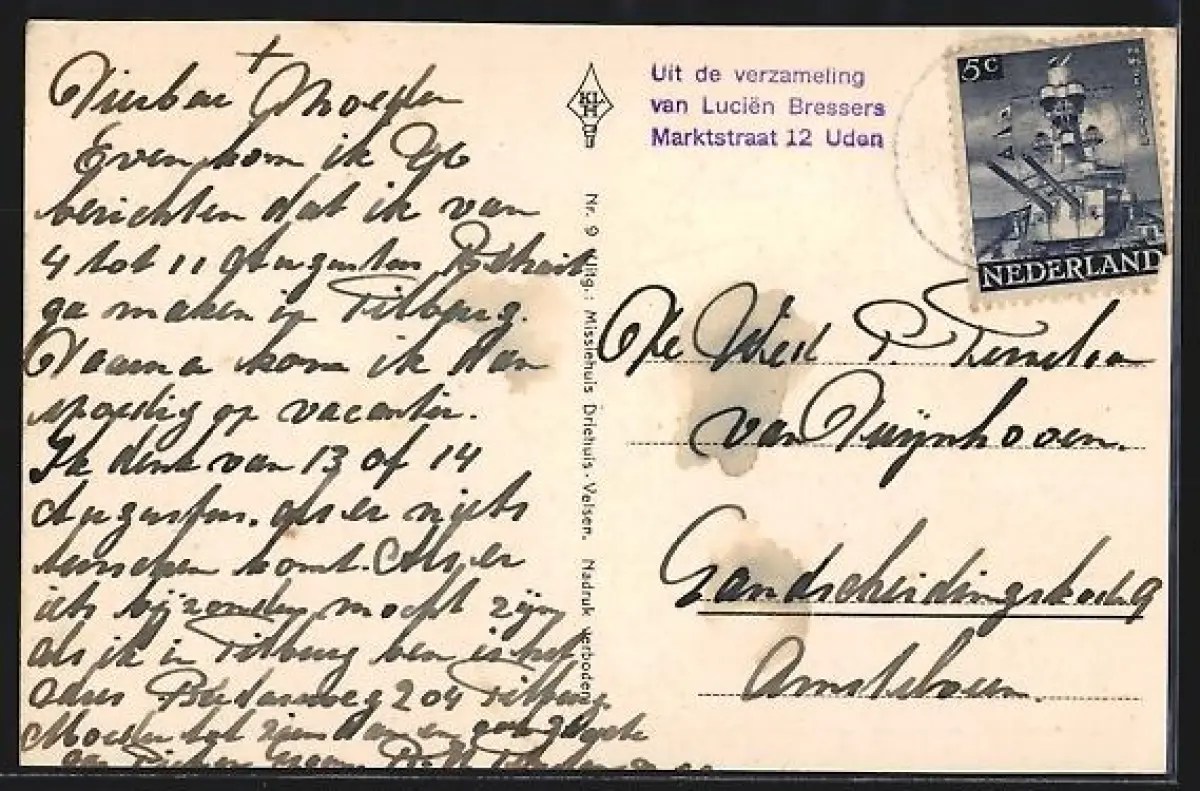 Dierbar Moeder
Even kom ik U
berichten dat ik van
4 tot 11 Augustus Retrait
ga maken in Tilburg.
Daarna kom ik dan
spoedig op vacantie.
Ik denk van 13 of 14
Augustus. als er niets
tusschen komt. Als er
iets bijzonders mocht zijn
als ik in Tilburg ben is het
adres Bredaseweg 204 Tilburg.
Moeder tot ziens dan en
KLHH
Nr. 9 Uitg.: Missiehuis Driehuis-Velsen. Nadruk verboden
Uit de verzameling
van Luciën Bressers
Marktstraat 12 Uden
5c
NEDERLAND
De Wed P.
van Duijnhoven.
Landscheidingskade 9
Amstelveen.